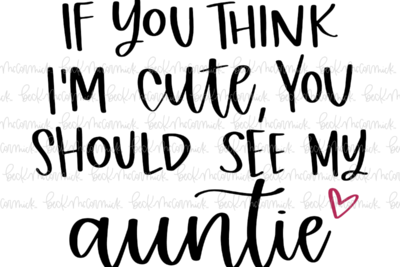 IF YOU THINK
I'M cute, YOU
SHOULD SEE MY
auntie